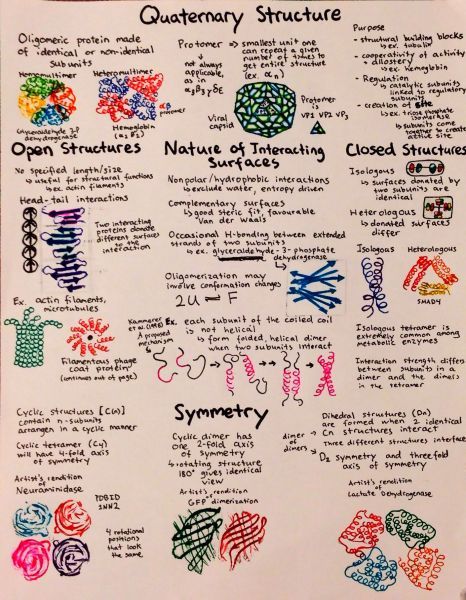 Quaternary Structure
Oligomeric protein made
of identical or non-identical
subunits
Homomultimer
Heteromultimer
Glyceraldehyde 3-P
dehydrogenase
Hemoglobin
αβ
protomer
Protomer → smallest unit one
can repeat a given
number of times to
get entire structure
(ex. αn)
not always
applicable,
as in
Viral
capsid
Protomer
is
VP1 VP2 VP3
Purpose
- structural building blocks
↳ ex. tubulin
- cooperativity of activity
+ allostery
↳ ex. hemoglobin
- Regulation
↳ catalytic subunits
linked to regulatory
subunits
- creation of site
↳ ex. triose phosphate
isomerase
↳ subunits come
together to create
active site
Open Structures
No specified length/size
↳ useful for structural functions
↳ ex. actin filaments
Head-tail interactions
Two interacting
proteins donate
different surfaces
to the
interaction
Ex. actin filaments,
microtubules
Filamentous phage
coat protein
(continues out of page)
Nature of Interacting
Surfaces
Nonpolar/hydrophobic interactions
↳ exclude water, entropy driven
Complementary surfaces
↳ good steric fit, favourable
Van der Waals
Occasional H-bonding between extended
strands of two subunits
↳ ex. glyceraldehyde-3-phosphate
dehydrogenase
Oligomerization may
involve conformation changes
2U ⇌ F
Kammerer
et al. (1998)
A proposed
mechanism
Ex. each subunit of the coiled coil
is not helical
↳ form folded, helical dimer
when two subunits interact
Closed Structures
Isologous
↳ surfaces donated by
two subunits are
identical
Heterologous
↳ donated surfaces
differ
Isologous
Heterologous
SMAD4
Isologous tetramer is
extremely common among
metabolic enzymes
Interaction strength differs
between subunits in a
dimer and the dimers
in the tetramer
Symmetry
Cyclic structures [Cn]
contain n-subunits
arrangen in a cyclic manner
Cyclic tetramer (C4)
will have 4-fold axis
of symmetry
Artist's rendition of
Neuraminidase
PDBID
4 rotational
positions
that look
the same.
Cyclic dimer has
one 2-fold axis
of symmetry
↳ rotating structure
180° gives identical
view
Artist's rendition
of
GFP dimerization
Dihedral structures (Dn)
are formed when 2 identical
Cn structures interact
dimer
of
dimers
Three different structures interface
↳ D2 symmetry and threefold
axis of symmetry
Artist's rendition
of
Lactate Dehydrogenase